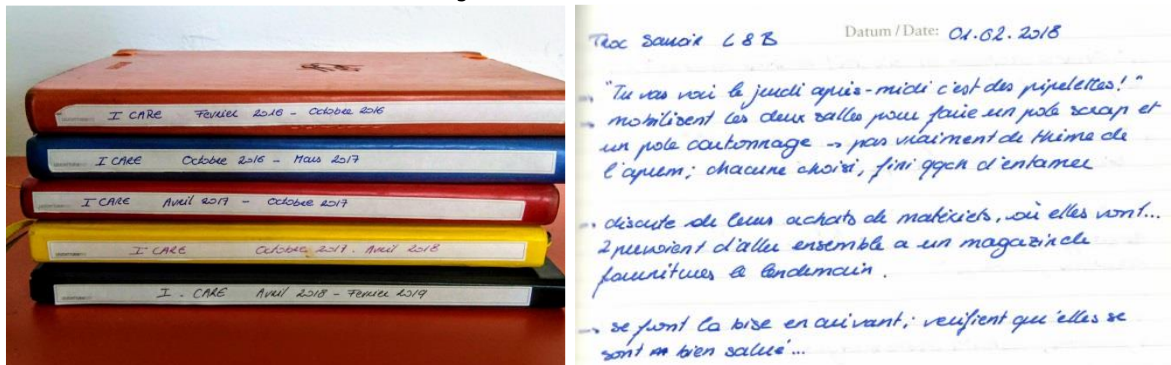 I CARE Fevrier 2016 - Octobre 2016
I CARE Octobre 2016 - Mars 2017
I CARE Avril 2017 - Octobre 2017
I CARE Octobre 2017 - Avril 2018
I. CARE Avril 2018 - Fevrier 2019
Troc Savoir L8B Datum / Date: 01.02.2018
"Tu vas voir le jeudi après-midi c'est des pipelettes!"
mobilisent les deux salles pour faire un pole scrap et
un pole cartonnage → pas vraiment de thème de
l'aprem; chacune choisi, fini qqch d'entamer
discute de leurs achats de matériels, où elles vont...
2 prevoient d'aller ensemble a un magazin de
fournitures le lendemain.
se font la bise en arrivant; verifient qu'elles se
sont bien salué...